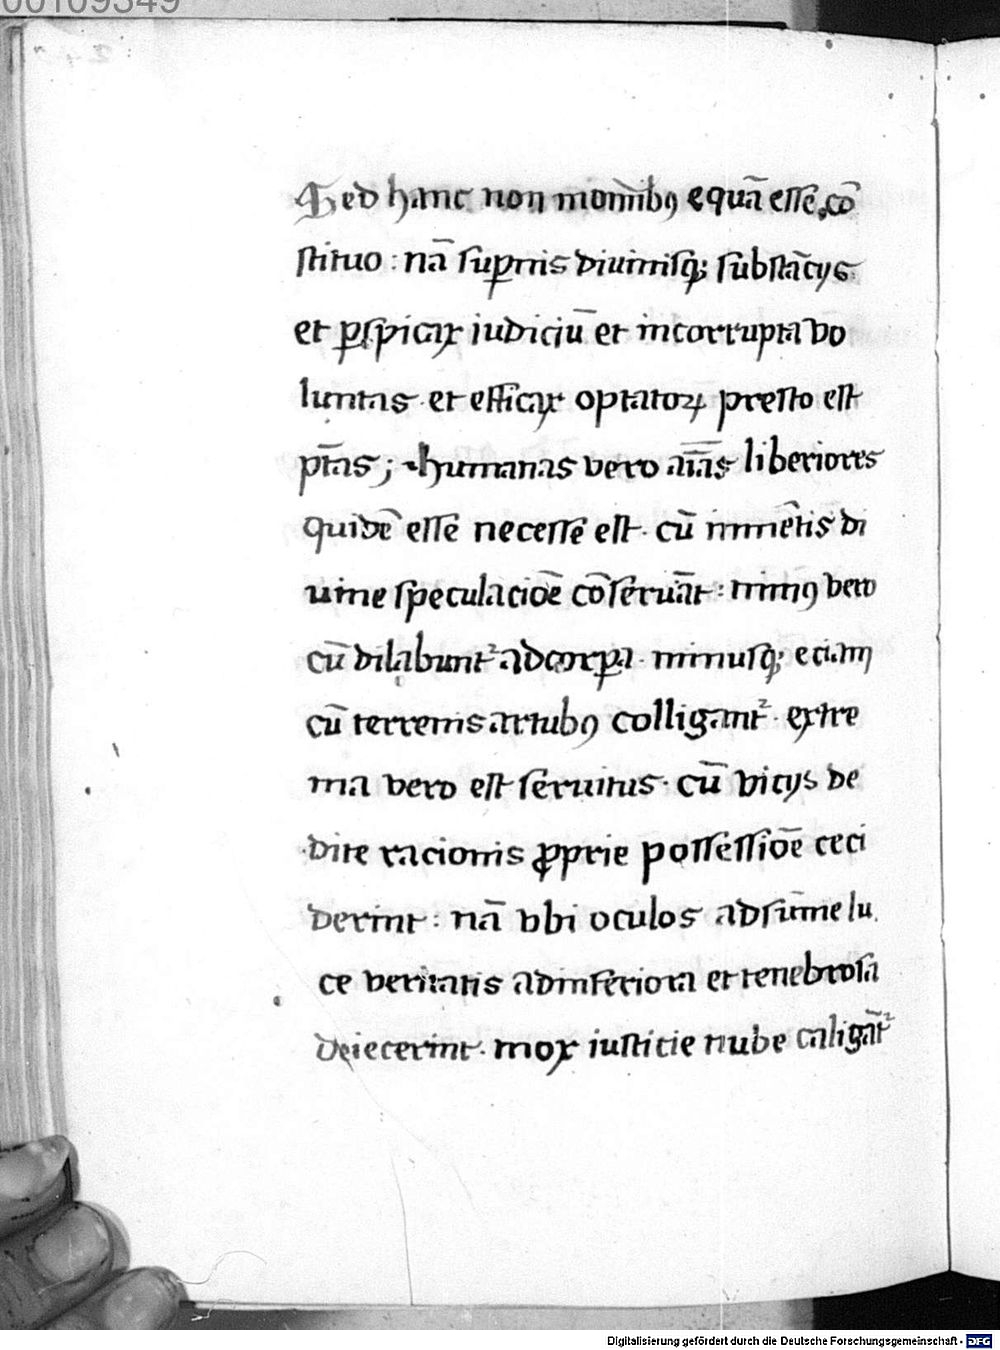 00109349
Sed hanc non monib⁹ equā esse cō
stituo : nā suꝑnis diuinisqꝫ substācijs
et ꝑspicax iudiciū et incorrupta vo
luntas · et efficax optatoꝝ presto est
ptās ; humanas vero aīas liberiores
quidē esse necesse est · cū in mētis di
uine speculacioē cōseruāt : min⁹ vero
cū dilabunt᷑ ad corꝑa · minusqꝫ eciam
cū terrenis artub⁹ colligant᷑ · extre
ma vero est seruitus · cū vicijs de
dite racionis ꝓprie possessioē ceci
derint : nā vbi oculos ad sūme lu
ce veritatis ad inferiora et tenebrosa
deiecerint · mox iusticie nube caligāt᷑
Digitalisierung gefördert durch die Deutsche Forschungsgemeinschaft - DFG